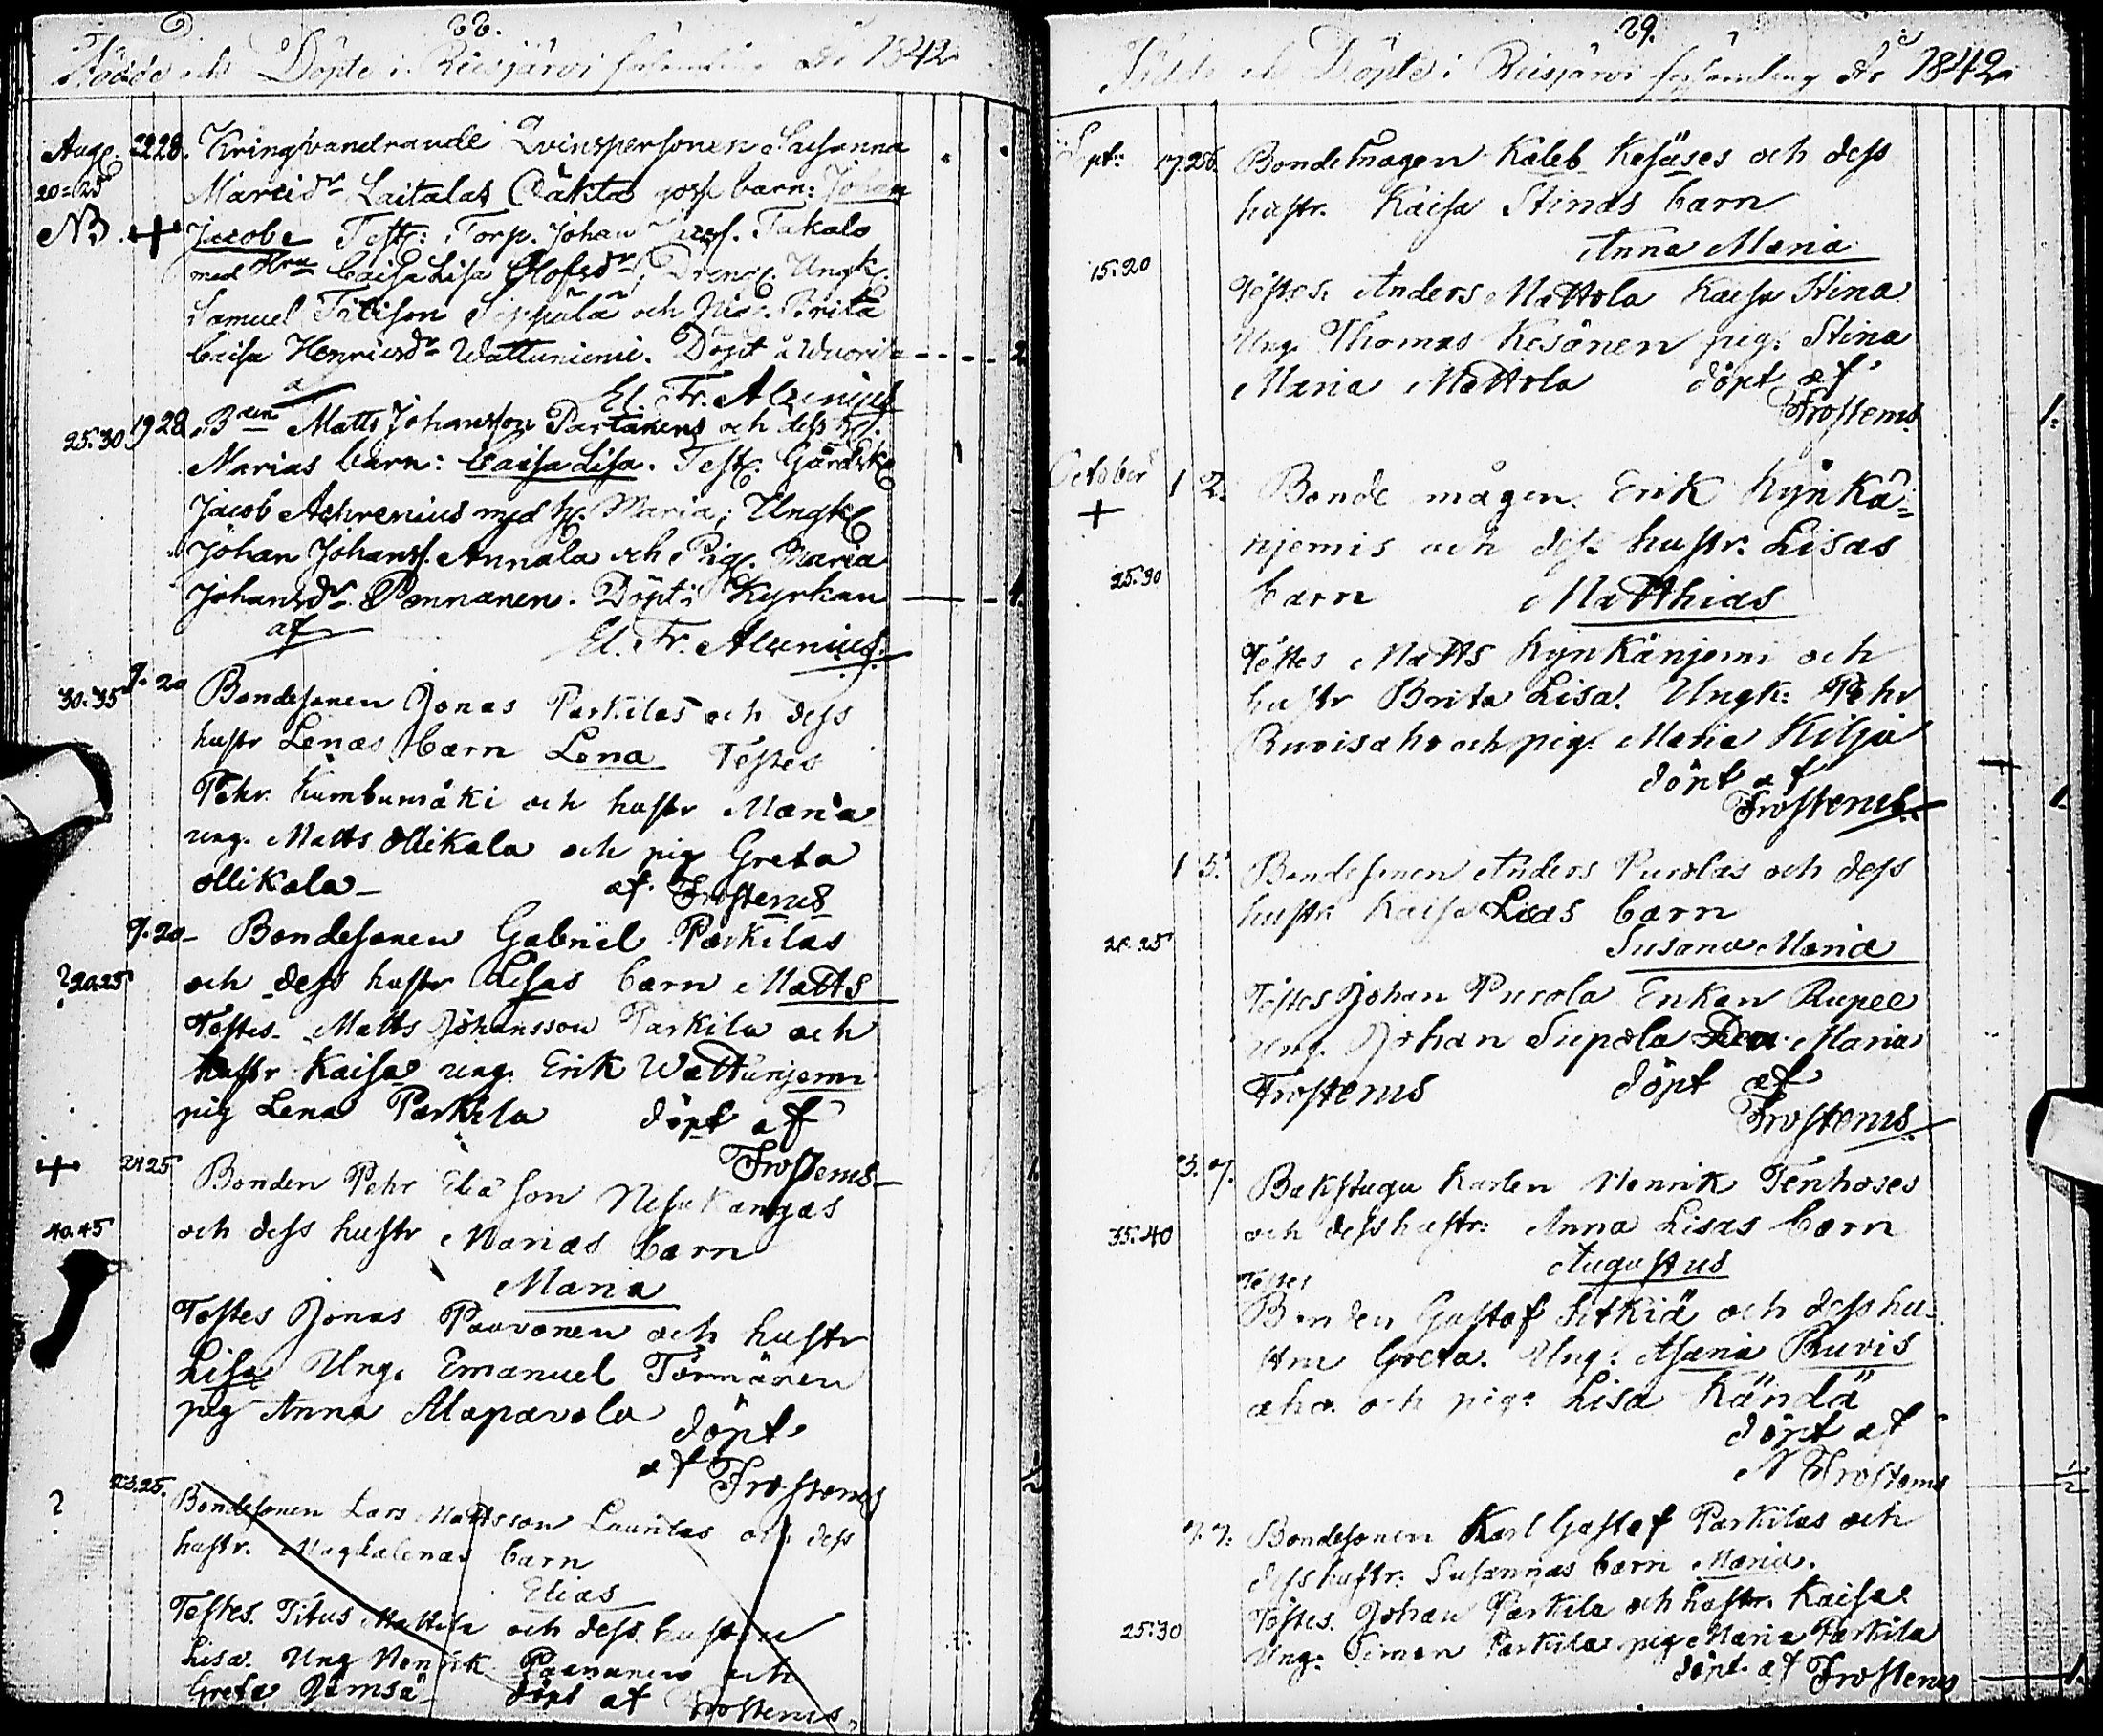 28.
Födde och Döpte i Reisjärvi församling År 1842
Aug. 22 28. Kringvandrande Qvinspersonen Susanna
20-25 Marcidr Laitalas Oäkta goss barn: Johan
NB. + Jacob Test: Torp. Johan Takalo
med Hru Caisa Lisa Olofsdr, Dreng. Ungk.
Samuel Seppälä och Pig. Brita
Caisa Henricsdr Wattuniemi. Döpt i Wuori 2
af El. Fr. Alcenius
25.30 19 28 Bden Matts Johansson Partanens och dess H.
Marias barn: Caisa Lisa. Test. Gårdsk
Jacob Achrenius med H. Maria; Ungk
Johan Johanss. Annala och Pig. Maria
Johansdr Pennanen. Döpt i Kyrkan 1.
af El. Fr. Alcenius
30.35 9. 20 Bondesonen Jonas Parkilas och dess
hustr Lenas barn Lena Testes
Pehr Kumbumäki och hustr Maria
ung. Matts Ollikala och pig Greta
Ollikala af Frosterus
9. 20 Bondesonen Gabriel Parkilas
? 20.25 och dess hustr Lisas barn Matts
Testes. Matts Johansson Parkila och
hustr Kaisa ung. Erik Wattunjemi
pig Lena Parkila döpt af
Frosterus
+ 24 25 Bonden Pehr Eliasson Nesukangas
40.45 och dess hustr Marias barn
Maria
Testes Jonas Paavonen och hustr
Lisa Ung. Emanuel Törmänen
pig Anna Alapavola döpt
af Frosterus
? 23.25. Bondesonen Lars Mattsson Launlas och dess
hustr. Magdalenas barn
Elias
Testes. Titus Mattila och dess hustru
Lisa. Ung Henrik Paananen och
Greta Jämsä döpt af Frosterus
29.
Födde och Döpte i Reisjärvi församling År 1842
Sept: 17. 25. Bondemågen Kaleb Kesäses och dess
hustr. Kaisa Stinas barn
Anna Maria
15.20 Testes. Anders Mattola Kaisa Stina
Ung. Thomas Kesänen pig: Stina
Maria Mattola döpt af
Frosterus 1.
October 1 2. Bonde mågen Erik Kynkä=
+ njemis och dess hustr. Lisas
25.30 barn Matthias
Testes Matts Kynkänjemi och
hustr Brita Lisa. Ungk: Pehr
Ruvisaho och pig. Maria Kilja
döpt af
Frosterus 1.
1 3. Bondesonen Anders Purolas och dess
hustr. Kaisa Lisas barn
20.25 Susana Maria
Testes Johan Purola Enkan Rupee
Ung. Johan Siepola Maria
Frosterus döpt af
Frosterus
3. 9. Bakstugu Karlen Henrik Tenhoses
35.40 och dess hustr: Anna Lisas barn
Augustus
Testes
Bonden Gustaf Sitkiä och dess hu=
stru Greta. Ung: Asaria Ruvis
aho och pig: Lisa Kändä
döpt af
N Frosterus 1/2
9. 9. Bondesonen Karl Gustaf Parkilas och
dess hustr: Susannas barn Maria.
Testes. Johan Parkila och hustr. Kaisa
25.30 Ung: Simon Parkila pig Maria Parkila
döpt af Frosterus 1.